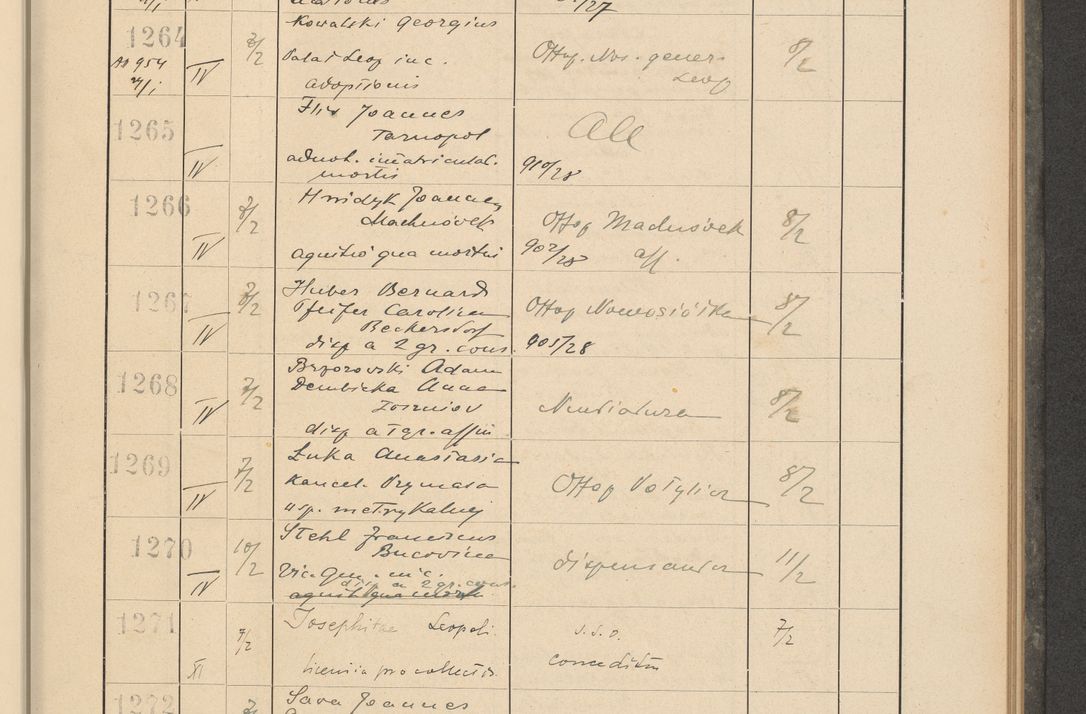 1264
IV
8/2
Kowalski Georgius
Palat Leop inc.
adoptionis
Ottop. Nos. gener
Leop
8/2
1265
IV
Joannes
Tarnopol
adnot. immatriculat.
mortis
All
910/28
1266
IV
8/2
Hnidyk Joannes
Machnówek
agnitio qua mortui
Ottop Machnówek
902/28 aff.
8/2
1267
IV
8/2
Huber Bernard
Pfeifer Carolina
Beckersdorf
disp a 2 gr. cons.
Ottop Nowosiółka
905/28
8/2
1268
IV
7/2
Brzozowski Adam
Dembicka Anna
disp a 1 gr. affin
Nuntiatura
8/2
1269
IV
7/2
Łuka Anastasia
Kancel. Prymasa
usp. metrykalnej
Ottop Wołylicz
8/2
1270
IV
10/2
Stehl Franciscus
Bucovina
Vic. Gen. inc.
disp a 2 gr. cons.
agnitio qua mort
dispensantur
11/2
1271
XI
7/2
Josephitae Leopoli
licentia pro collectis
conceditur
7/2
1272
Sava Joannes